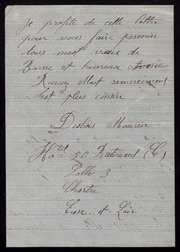 Je profite de cette lettre
pour vous faire parvenir
tous mes vœux de
Bonne et heureuse Année
Recevez Mes remerciement
les plus sincère
Desbois Maurice
50 Batiment (C)
Salle 3
Chartre
Eure et Loir